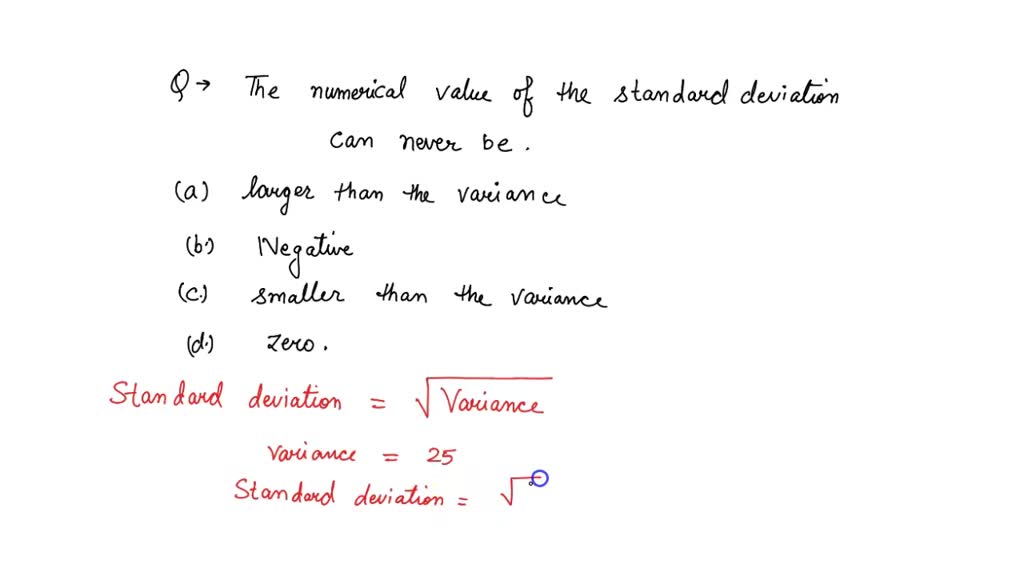 Q → The numerical value of the standard deviation
can never be.
(a) larger than the variance
(b.) Negative
(c.) smaller than the variance
(d.) zero.
Standard deviation = √Variance
variance = 25
Standard deviation = √